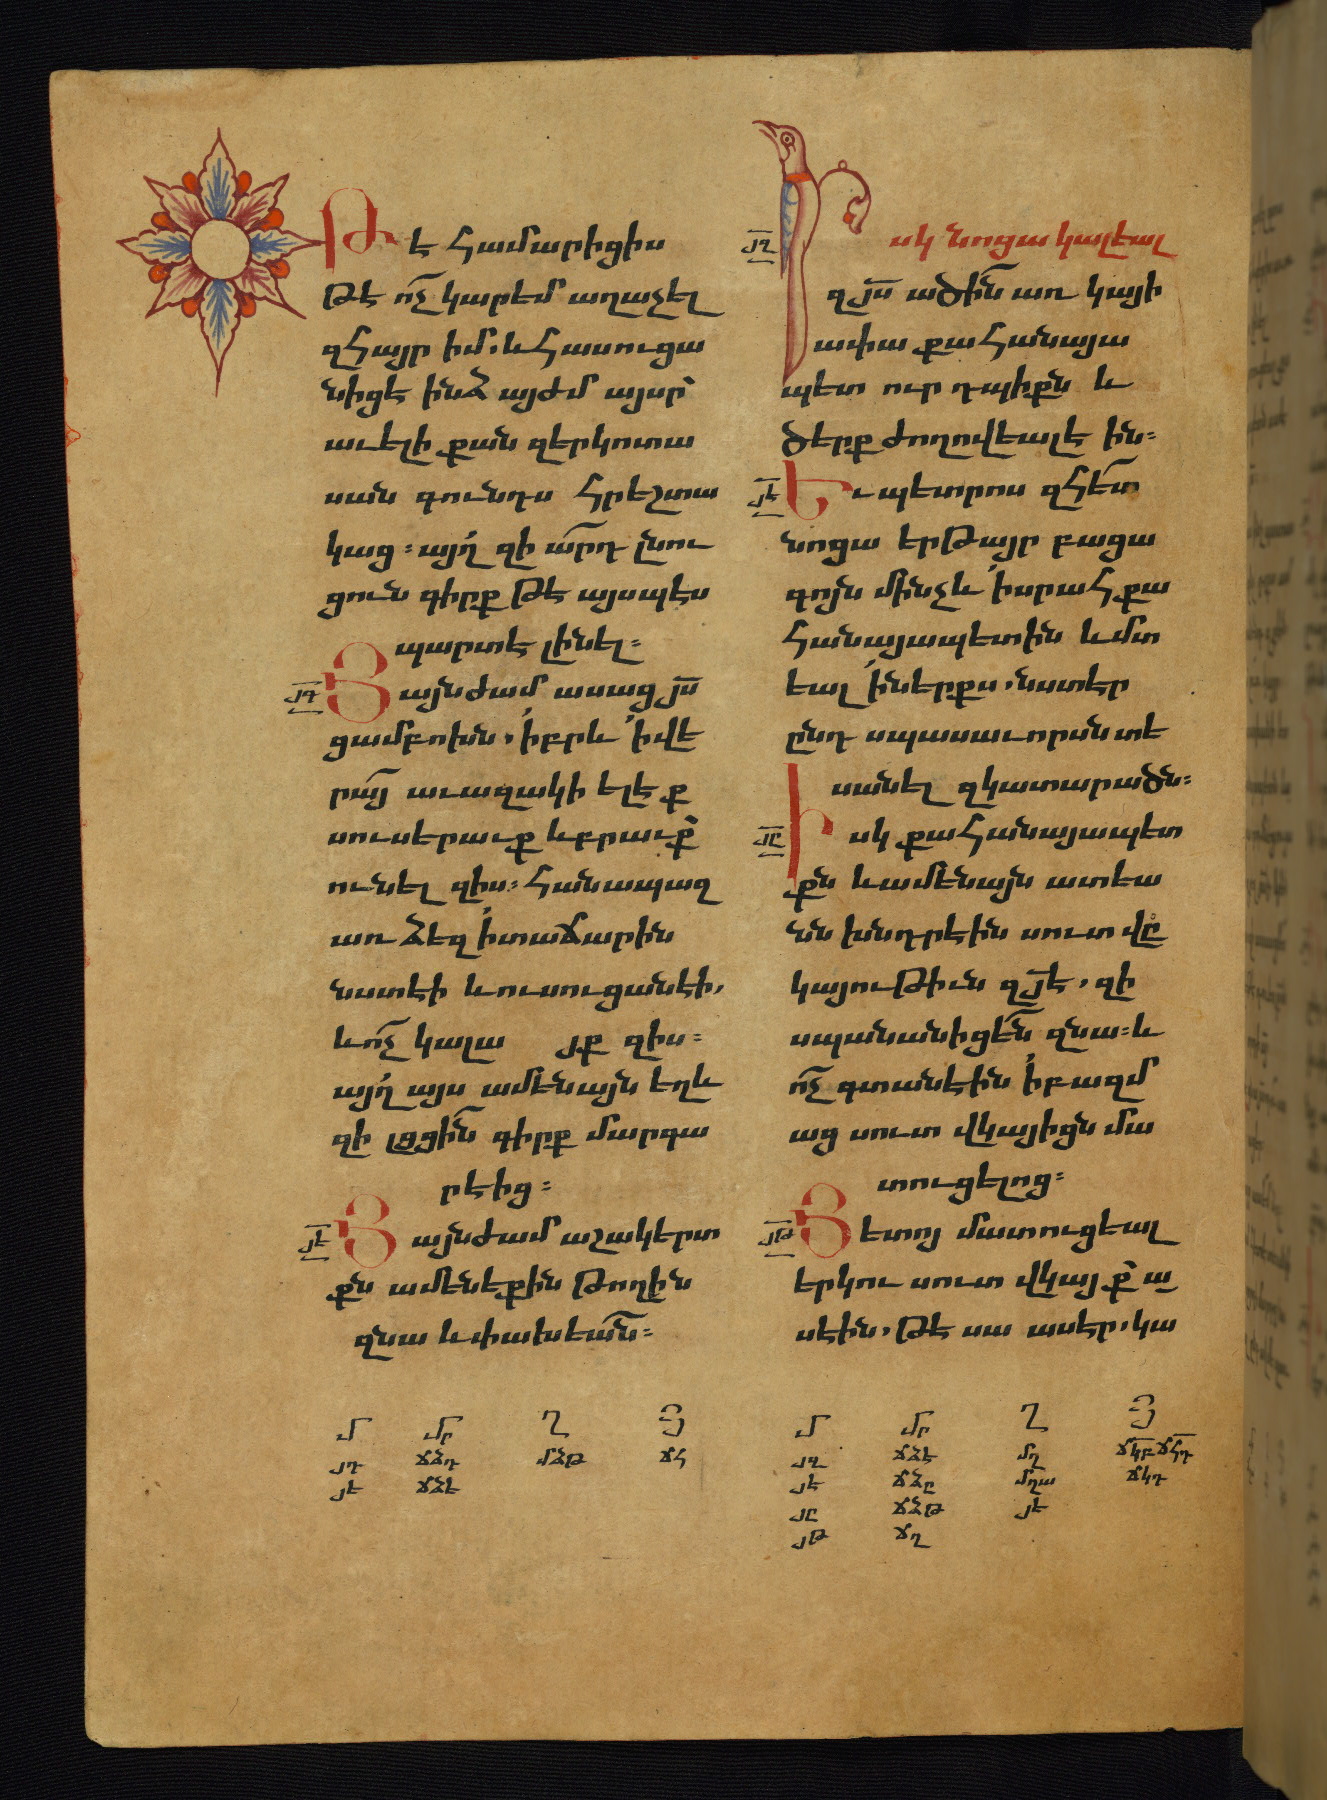 Թէ համարիցիս
թէ ո՛չ կարեմ աղաչել
զհայր իմ. և հասուցա
նիցէ ինձ այժմ այսր՝
աւելի քան զերկոտա
սան գունդս հրեշտա
կաց։ այղ զի ա՟րդ լնու
ցուն գիրք թէ այսպէս
պարտէ լինել։
յդ Յայնժամ ասաց յս
ցամբոխն, իբրև ի վե
րայ աւազակի ելէք
սուսերաւք և բրաւք
ունել զիս։ հանապազ
առ ձեզ ի տաճարին
նստէի և ուսուցանէի,
և ոչ կալա յք զիս։
այղ այս ամենայն եղև
զի լցցին գիրք մարգա
րէից։
յե Յայնժամ աշակերտ
քն ամենեքին թողին
զնա և փախեան։
մ մր ղ յ
յդ ՃՁդ մՁթ Ճհ
յե ՃՁե
յզ Իսկ նոցա կալեալ
զյս ածին առ կայի
ափա քահանայա
պետ ուր դպիրքն և
ծերք ժողովեալ էին։
յէ Եւ պետրոս զհետ
նոցա երթայր բացա
գոյն մինչև ի սրահ քա
հանայապետին և մտ
եալ ի ներքս, նստէր
ընդ սպասաւորսն տե
սանել զկատարածն։
յը Իսկ քահանայապետ
քն և ամենայն ատեա
նն խնդրէին սուտ վը
կայութիւն զյե, զի
սպանանիցեն զնա։ և
ոչ գտանէին ի բազմ
աց սուտ վկայիցն մա
տուցելոց։
յթ Յետոյ մատուցեալ
երկու սուտ վկայք ա
սէին, թէ սա ասէր, կա
մ մր ղ յ
յզ ՃՁէ մղ Ճկբ Ճհդ
յէ ՃՁը մղա Ճկդ
յը ՃՁթ յե
յթ Ճղ